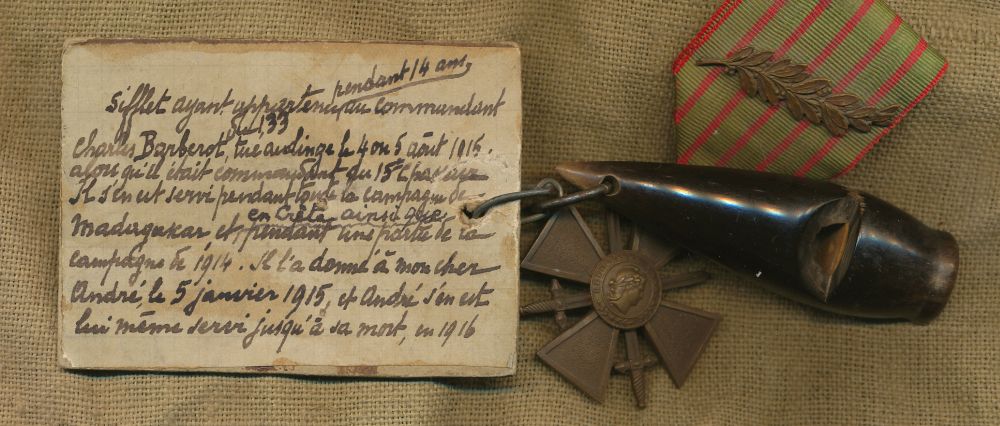 pendant 14 ans,
Sifflet ayant appartenu au commandant
du 133
Charles Barberot, tué au linge le 4 ou 5 août 1915.
alors qu'il était commandant du 15e
Il s'en est servi pendant toute la campagne de
en Crète ainsi que
Madagaskar et pendant une partie de la
campagne de 1914. Il l'a donné à mon cher
André, le 5 janvier 1915, et André s'en est
lui même servi jusqu'à sa mort, en 1916